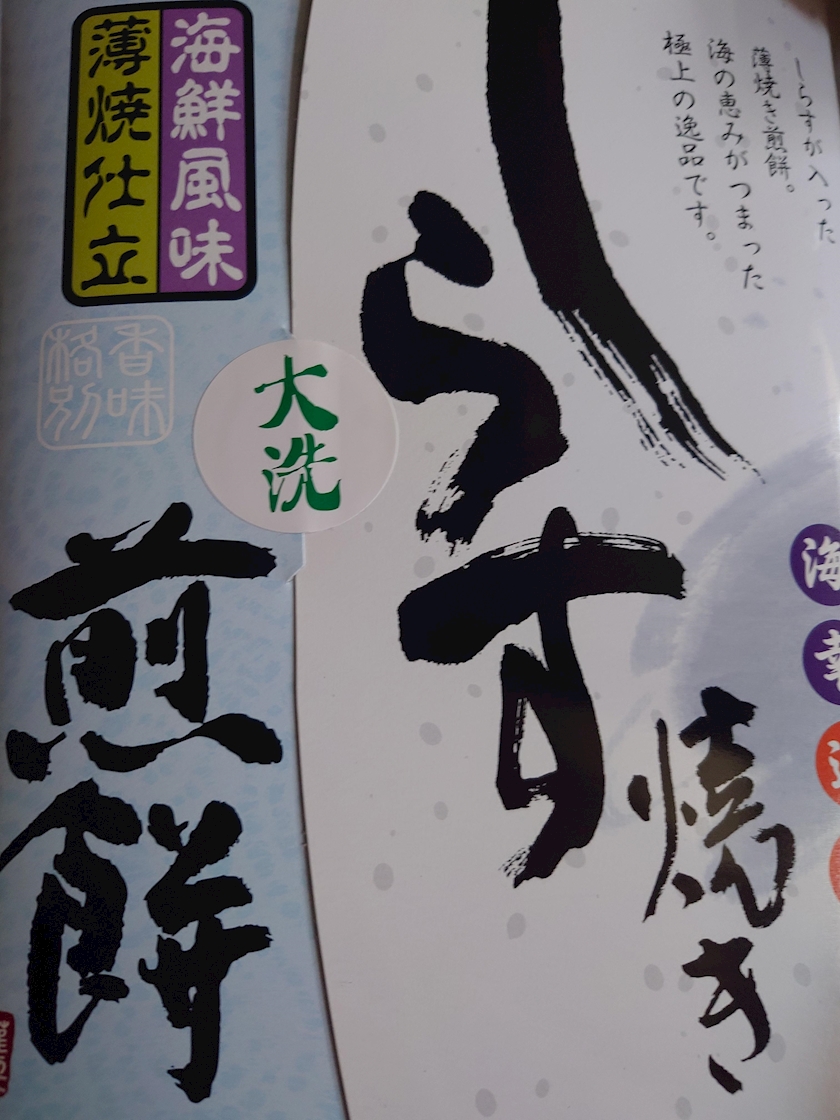 しらすが入った
薄焼き煎餅。
海の恵みがつまった
極上の逸品です。
しらす
焼き
海鮮風味
薄焼仕立
香味
格別
大洗
煎餅
海
幸